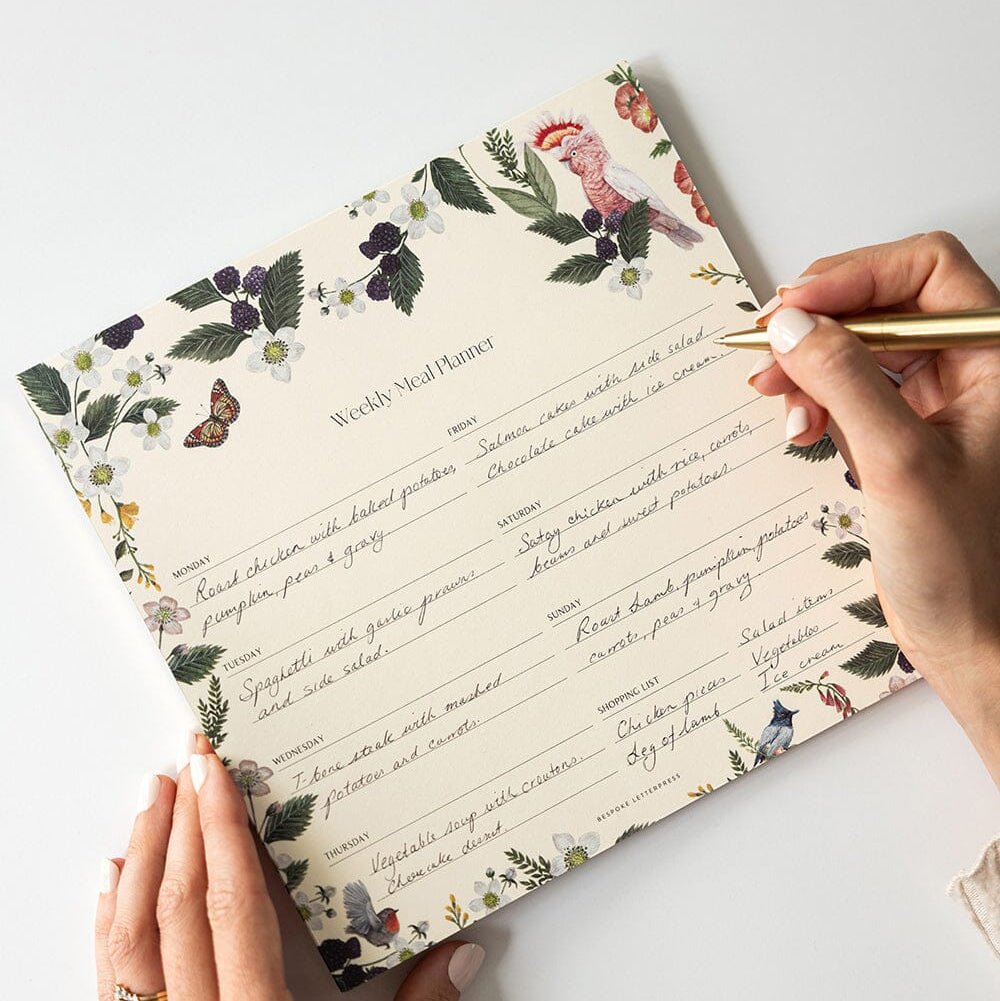 Weekly Meal Planner
MONDAY
Roast chicken with baked potatoes,
pumpkin, peas & gravy
TUESDAY
Spaghetti with garlic prawns
and side salad.
WEDNESDAY
T-bone steak with mashed
potatoes and carrots.
THURSDAY
Vegetable soup with croutons.
Cheesecake dessert.
FRIDAY
Salmon cakes with side salad
Chocolate cake with ice cream.
SATURDAY
Satay chicken with rice, carrots,
beans and sweet potatoes.
SUNDAY
Roast Lamb, pumpkin, potatoes
carrots, peas & gravy.
SHOPPING LIST
Chicken pieces
Leg of Lamb
Salad items
Vegetables
Ice cream
BESPOKE LETTERPRESS